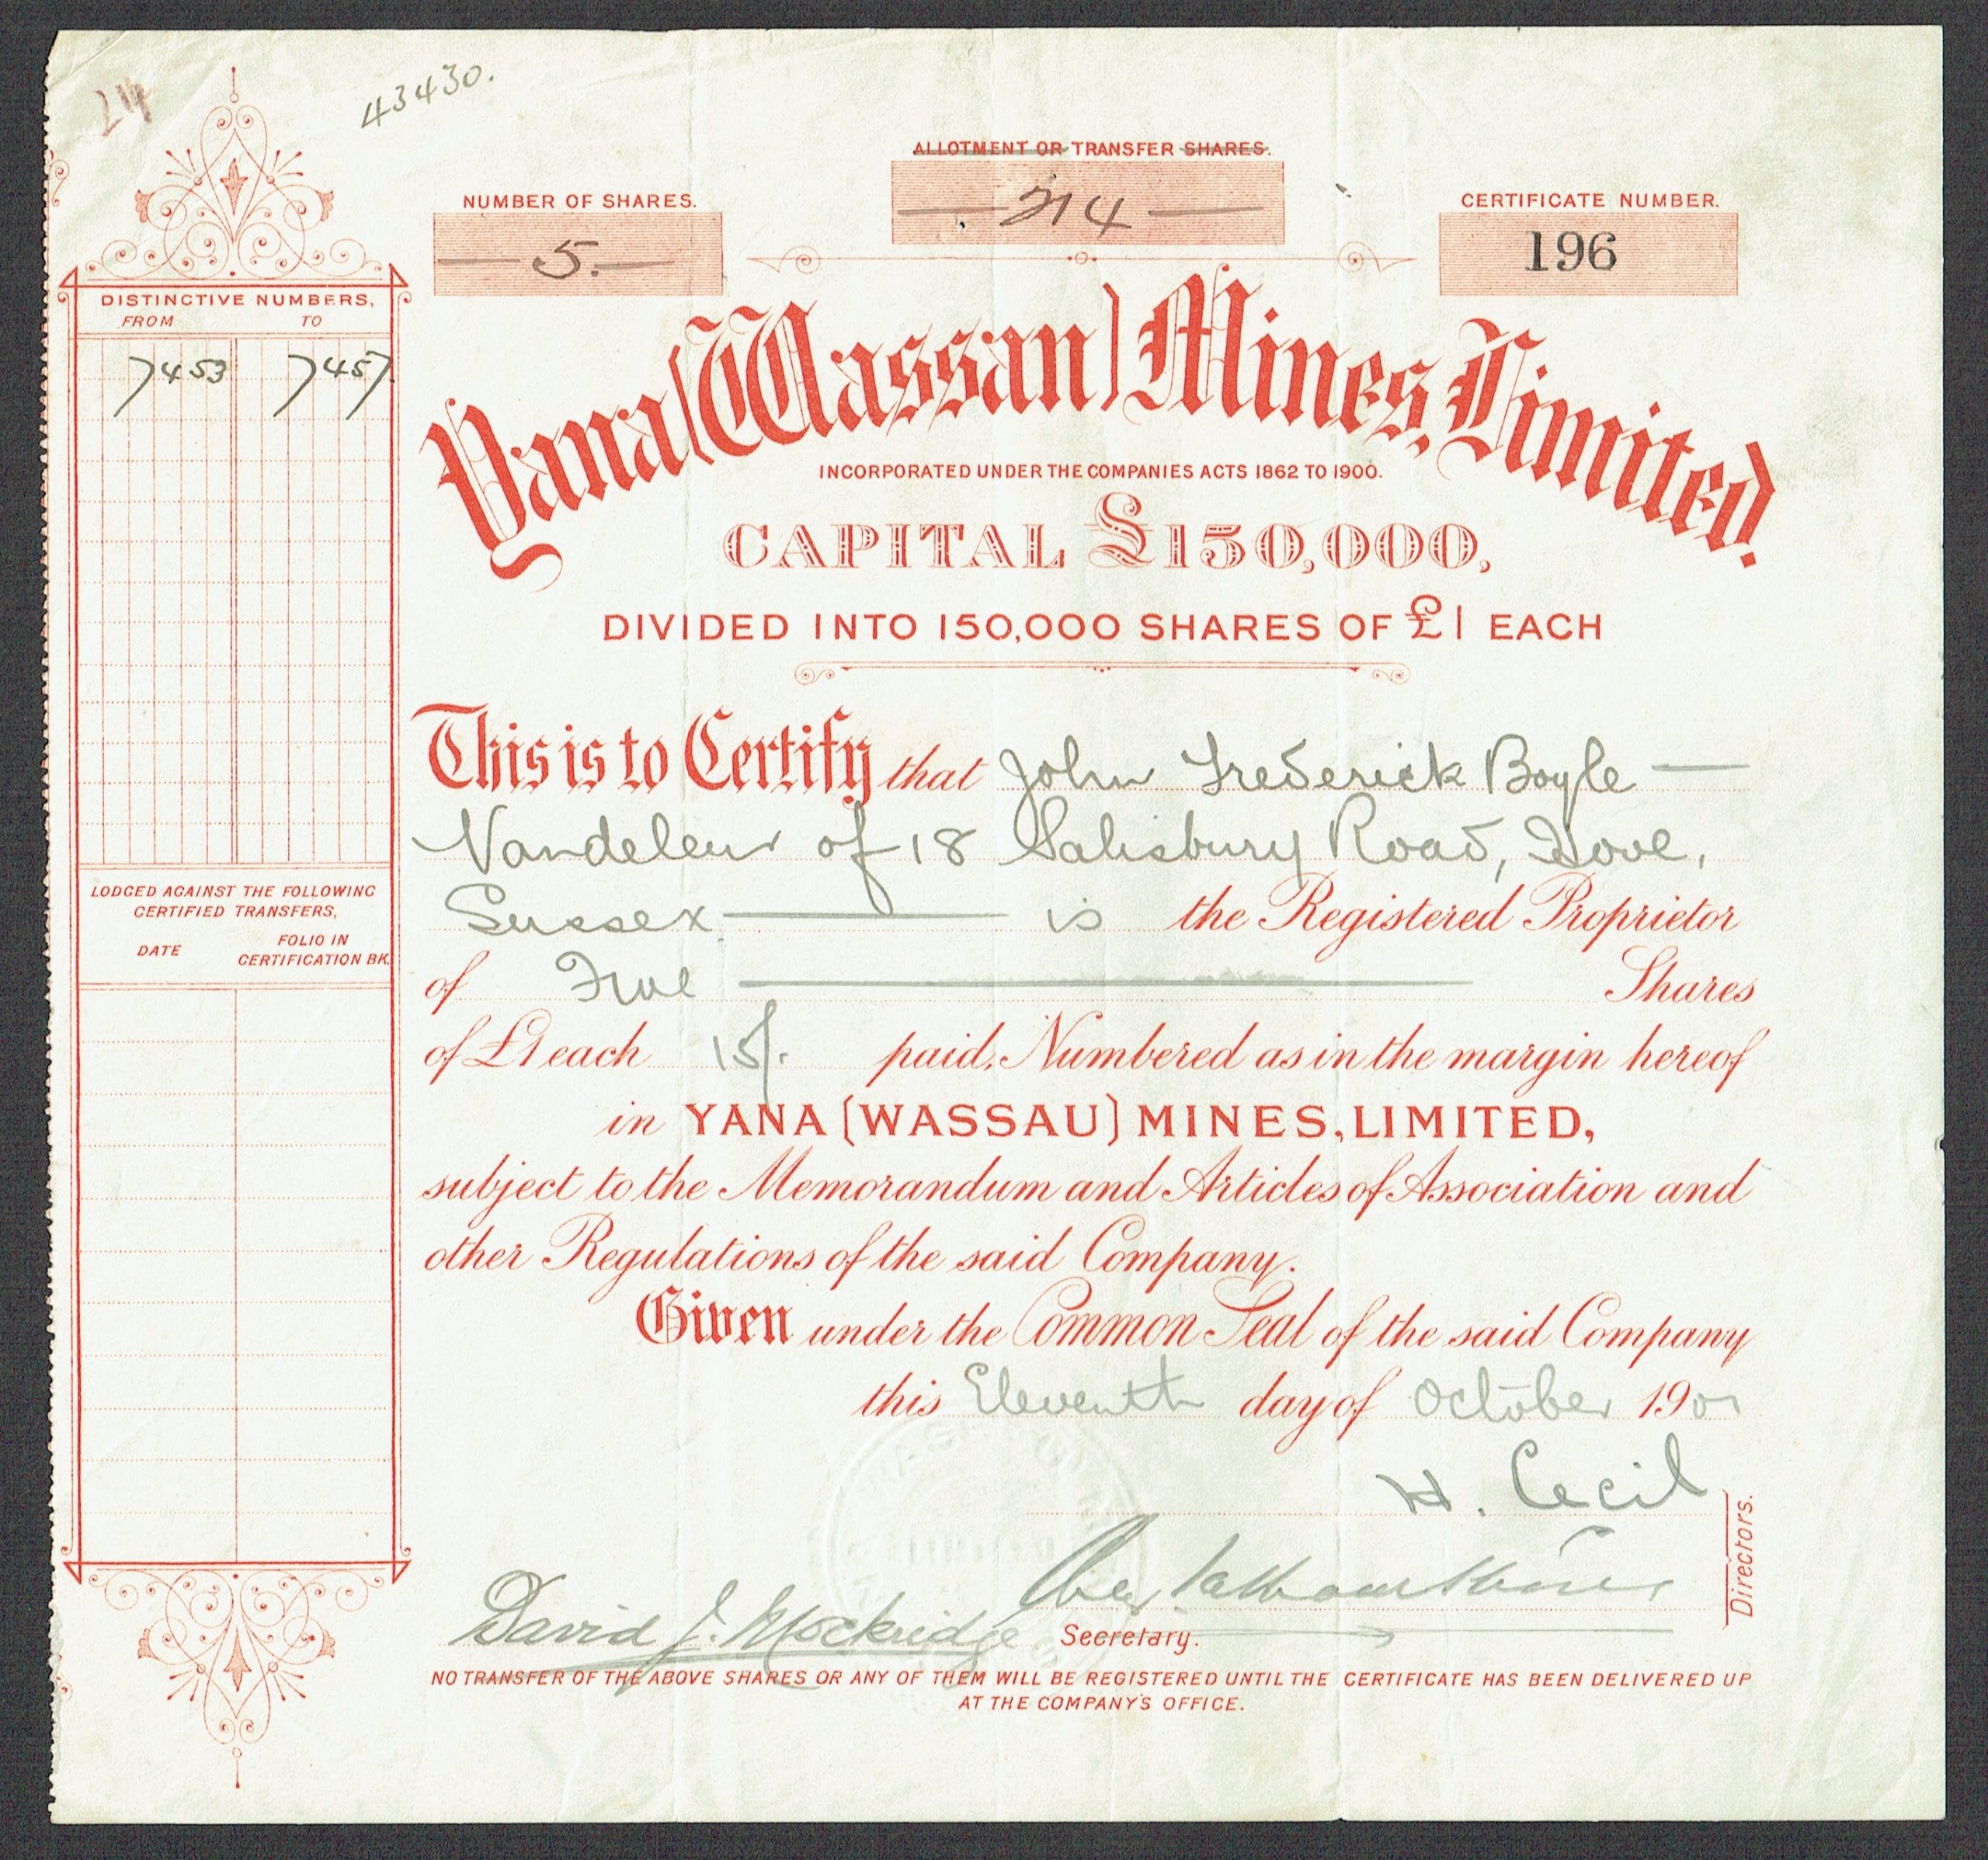 43430.
ALLOTMENT OR TRANSFER SHARES.
214
NUMBER OF SHARES.
5.
CERTIFICATE NUMBER.
196
DISTINCTIVE NUMBERS,
FROM TO
7453 7457
Yana (Wassau) Mines, Limited.
INCORPORATED UNDER THE COMPANIES ACTS 1862 TO 1900.
CAPITAL £150,000,
DIVIDED INTO 150,000 SHARES OF £1 EACH
This is to Certify that John Frederick Boyle
Vandeleur of 18 Salisbury Road, Hove,
Sussex is the Registered Proprietor
of Five Shares
of £1 each 15/- paid, Numbered as in the margin hereof
in YANA (WASSAU) MINES, LIMITED,
subject to the Memorandum and Articles of Association and
other Regulations of the said Company.
Given under the Common Seal of the said Company
this Eleventh day of October 1901
LODGED AGAINST THE FOLLOWING
CERTIFIED TRANSFERS,
DATE FOLIO IN
CERTIFICATION BK.
H. Cecil
Directors.
David J. Mockridge Secretary.
NO TRANSFER OF THE ABOVE SHARES OR ANY OF THEM WILL BE REGISTERED UNTIL THE CERTIFICATE HAS BEEN DELIVERED UP
AT THE COMPANY'S OFFICE.